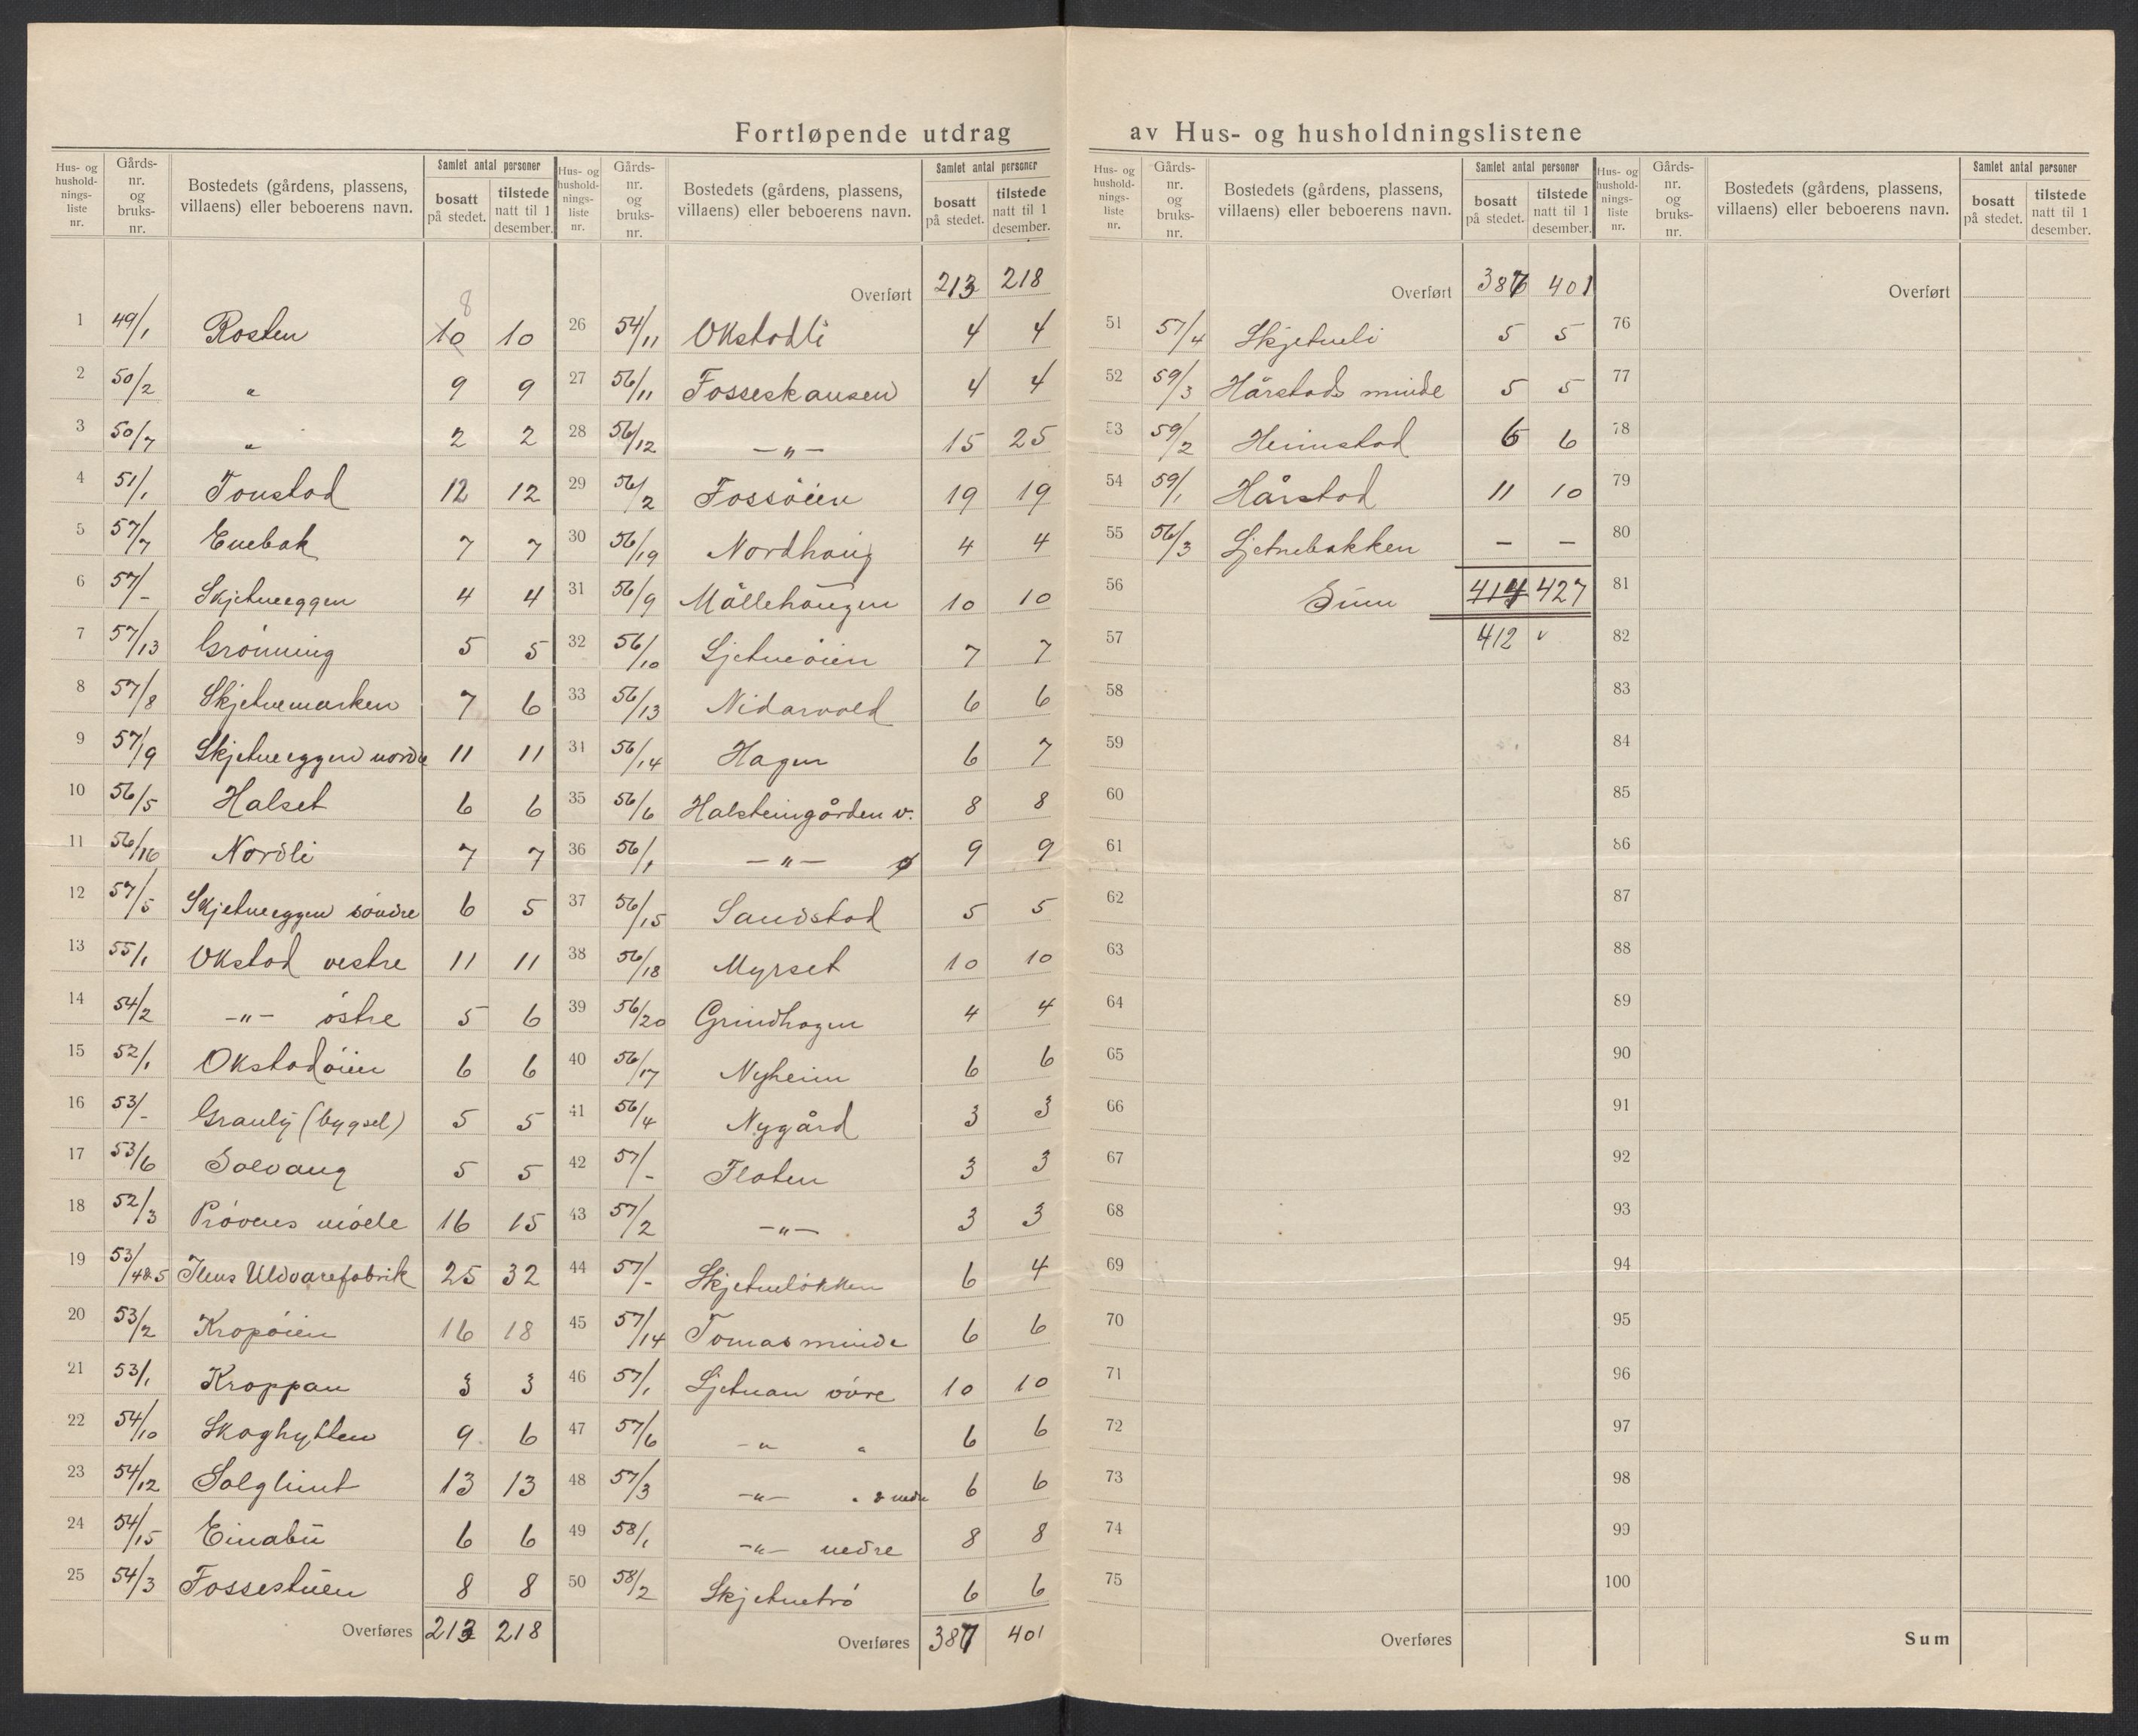 Fortløpende utdrag av Hus- og husholdningslistene
Hus- og husholdnings-liste nr. | Gårds-nr. og bruks-nr. | Bostedets (gårdens, plassens, villaens) eller beboerens navn. | Samlet antal personer | bosatt på stedet. | tilstede natt til 1 desember.
8
1 49/1 Rosten 10 10
2 50/2 " 9 9
3 50/7 " 2 2
4 51/1 Tonstad 12 12
5 57/7 Enebak 7 7
6 57/- Skjetneeggen 4 4
7 57/13 Grønning 5 5
8 57/8 Skjetnemarken 7 6
9 57/9 Skjetneeggen nordre 11 11
10 56/5 Halset 6 6
11 56/16 Nordli 7 7
12 57/5 Skjetneeggen søndre 6 5
13 55/1 Okstad vestre 11 11
14 54/2 -"- østre 5 6
15 52/1 Okstadøien 6 6
16 53/- Granly (bygsel) 5 5
17 53/6 Solvang 5 5
18 52/3 Prøvens mølle 16 15
19 53/4&5 Ilens Uldvarefabrik 25 32
20 53/2 Kropøien 16 18
21 53/1 Kroppan 3 3
22 54/10 Skoghytten 9 6
23 54/12 Solglimt 13 13
24 54/15 Einabu 6 6
25 54/3 Fossestuen 8 8
Overføres 213 218
Hus- og husholdnings-liste nr. | Gårds-nr. og bruks-nr. | Bostedets (gårdens, plassens, villaens) eller beboerens navn. | Samlet antal personer | bosatt på stedet. | tilstede natt til 1 desember.
Overført 213 218
26 54/11 Okstadli 4 4
27 56/11 Fosseskansen 4 4
28 56/12 -"- 15 25
29 56/2 Fossøien 19 19
30 56/19 Nordhaug 4 4
31 56/9 Møllehaugen 10 10
32 56/10 Sjetneøien 7 7
33 56/13 Nidarvold 6 6
34 56/14 Hagen 6 7
35 56/6 Halsteingården v. 8 8
36 56/1 -"- ø 9 9
37 56/15 Sandstad 5 5
38 56/18 Myrset 10 10
39 56/20 Grindhagen 4 4
40 56/17 Nyheim 6 6
41 56/4 Nygård 3 3
42 57/- Floten 3 3
43 57/2 -"- 3 3
44 57/- Skjetneløkken 6 4
45 57/14 Tomasminde 6 6
46 57/1 Sjetnan øvre 10 10
47 57/6 -" " 6 6
48 57/3 -"- " & nedre 6 6
49 58/1 -"- nedre 8 8
50 58/2 Skjetnetrø 6 6
Overføres 387 401
Hus- og husholdnings-liste nr. | Gårds-nr. og bruks-nr. | Bostedets (gårdens, plassens, villaens) eller beboerens navn. | Samlet antal personer | bosatt på stedet. | tilstede natt til 1 desember.
Overført 387 401
51 57/4 Skjetneli 5 5
52 59/3 Hårstads minde 5 5
53 59/2 Heimstad 6 6
54 59/1 Hårstad 11 10
55 56/3 Sjetnebakken - -
56 Sum 414 427
57 412 v
58
59
60
61
62
63
64
65
66
67
68
69
70
71
72
73
74
75
Overføres
Hus- og husholdnings-liste nr. | Gårds-nr. og bruks-nr. | Bostedets (gårdens, plassens, villaens) eller beboerens navn. | Samlet antal personer | bosatt på stedet. | tilstede natt til 1 desember.
Overført
76
77
78
79
80
81
82
83
84
85
86
87
88
89
90
91
92
93
94
95
96
97
98
99
100
Sum